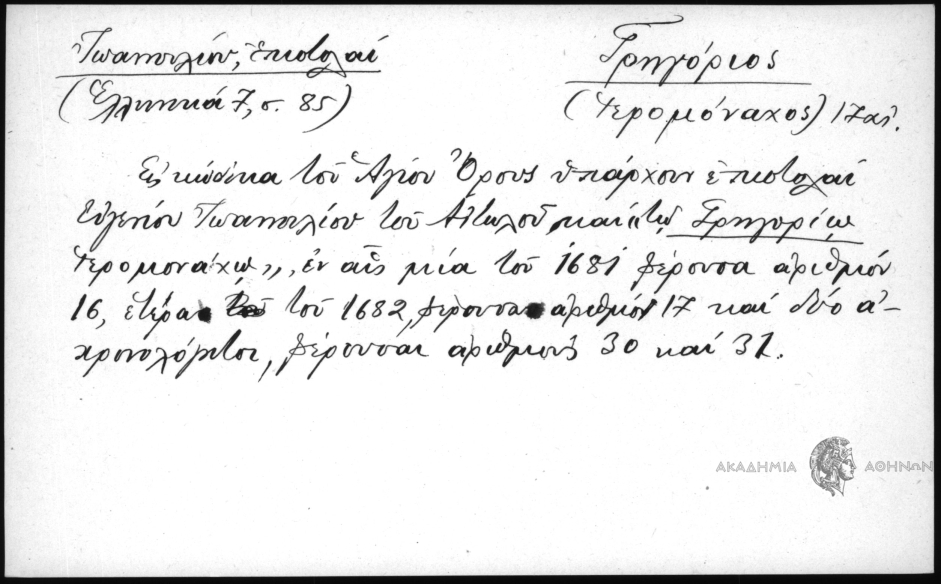 Ἰωαννουλίου, Ἐπιστολαί
(Ἑλληνικά 7, σ. 85)
Γρηγόριος
(Ἱερομόναχος) 17 αἰ.
Εἰς κώδικα τοῦ Ἁγίου Ὄρους ὑπάρχουν ἐπιστολαί
Εὐγενίου Ἰωαννουλίου τοῦ Αἰτωλοῦ, καί "τῷ Γρηγορίῳ
Ἱερομονάχῳ", ἐν αἷς μία τοῦ 1681 φέρουσα ἀριθμόν
16, ἑτέρα τοῦ 1682, φέρουσα ἀριθμόν 17 καί δύο ἀ-
χρονολόγητοι, φέρουσαι ἀριθμούς 30 καί 31.
ΑΚΑΔΗΜΙΑ ΑΘΗΝΩΝ